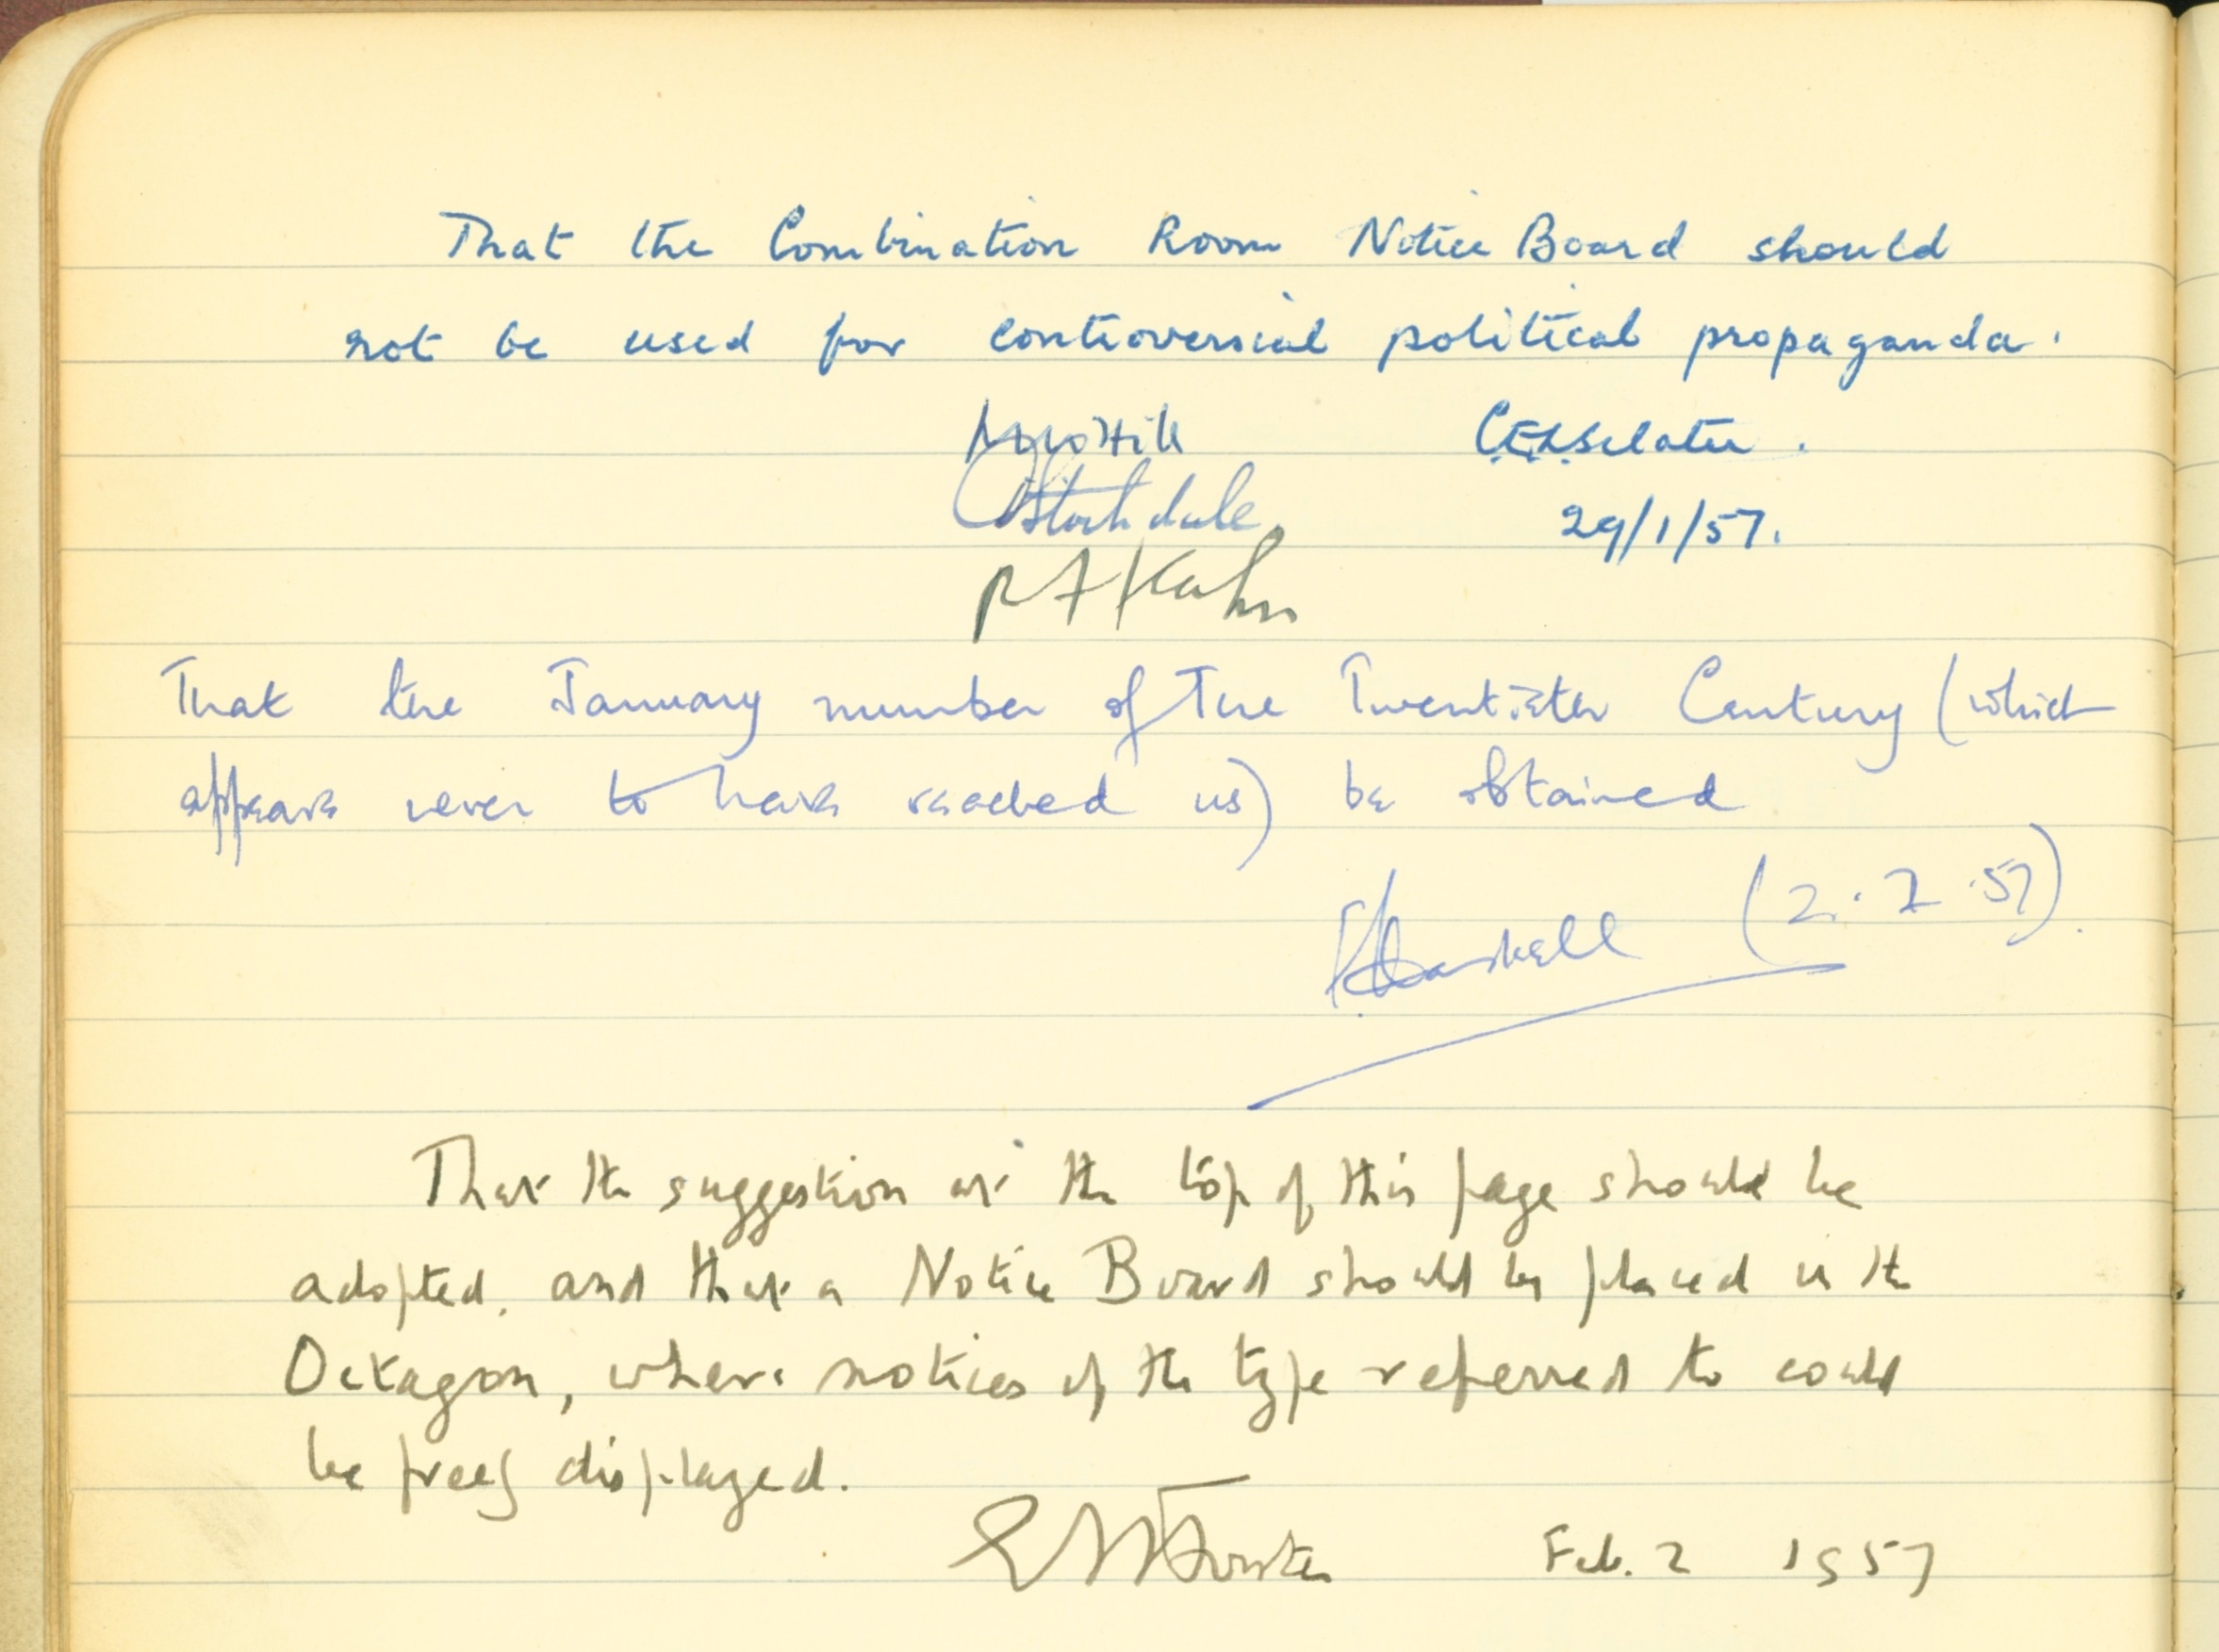 That the Combination Room Notice Board should
not be used for controversial political propaganda.
Hill
Stockdale
R F Kahn
29/1/57.
That the January number of The Twentieth Century (which
appears never to have reached us) be obtained
(2.2.57).
That the suggestion at the top of this page should be
adopted, and that a Notice Board should be placed in the
Octagon, where notices of the type referred to could
be freely displayed.
EM Forster Feb. 2 1957